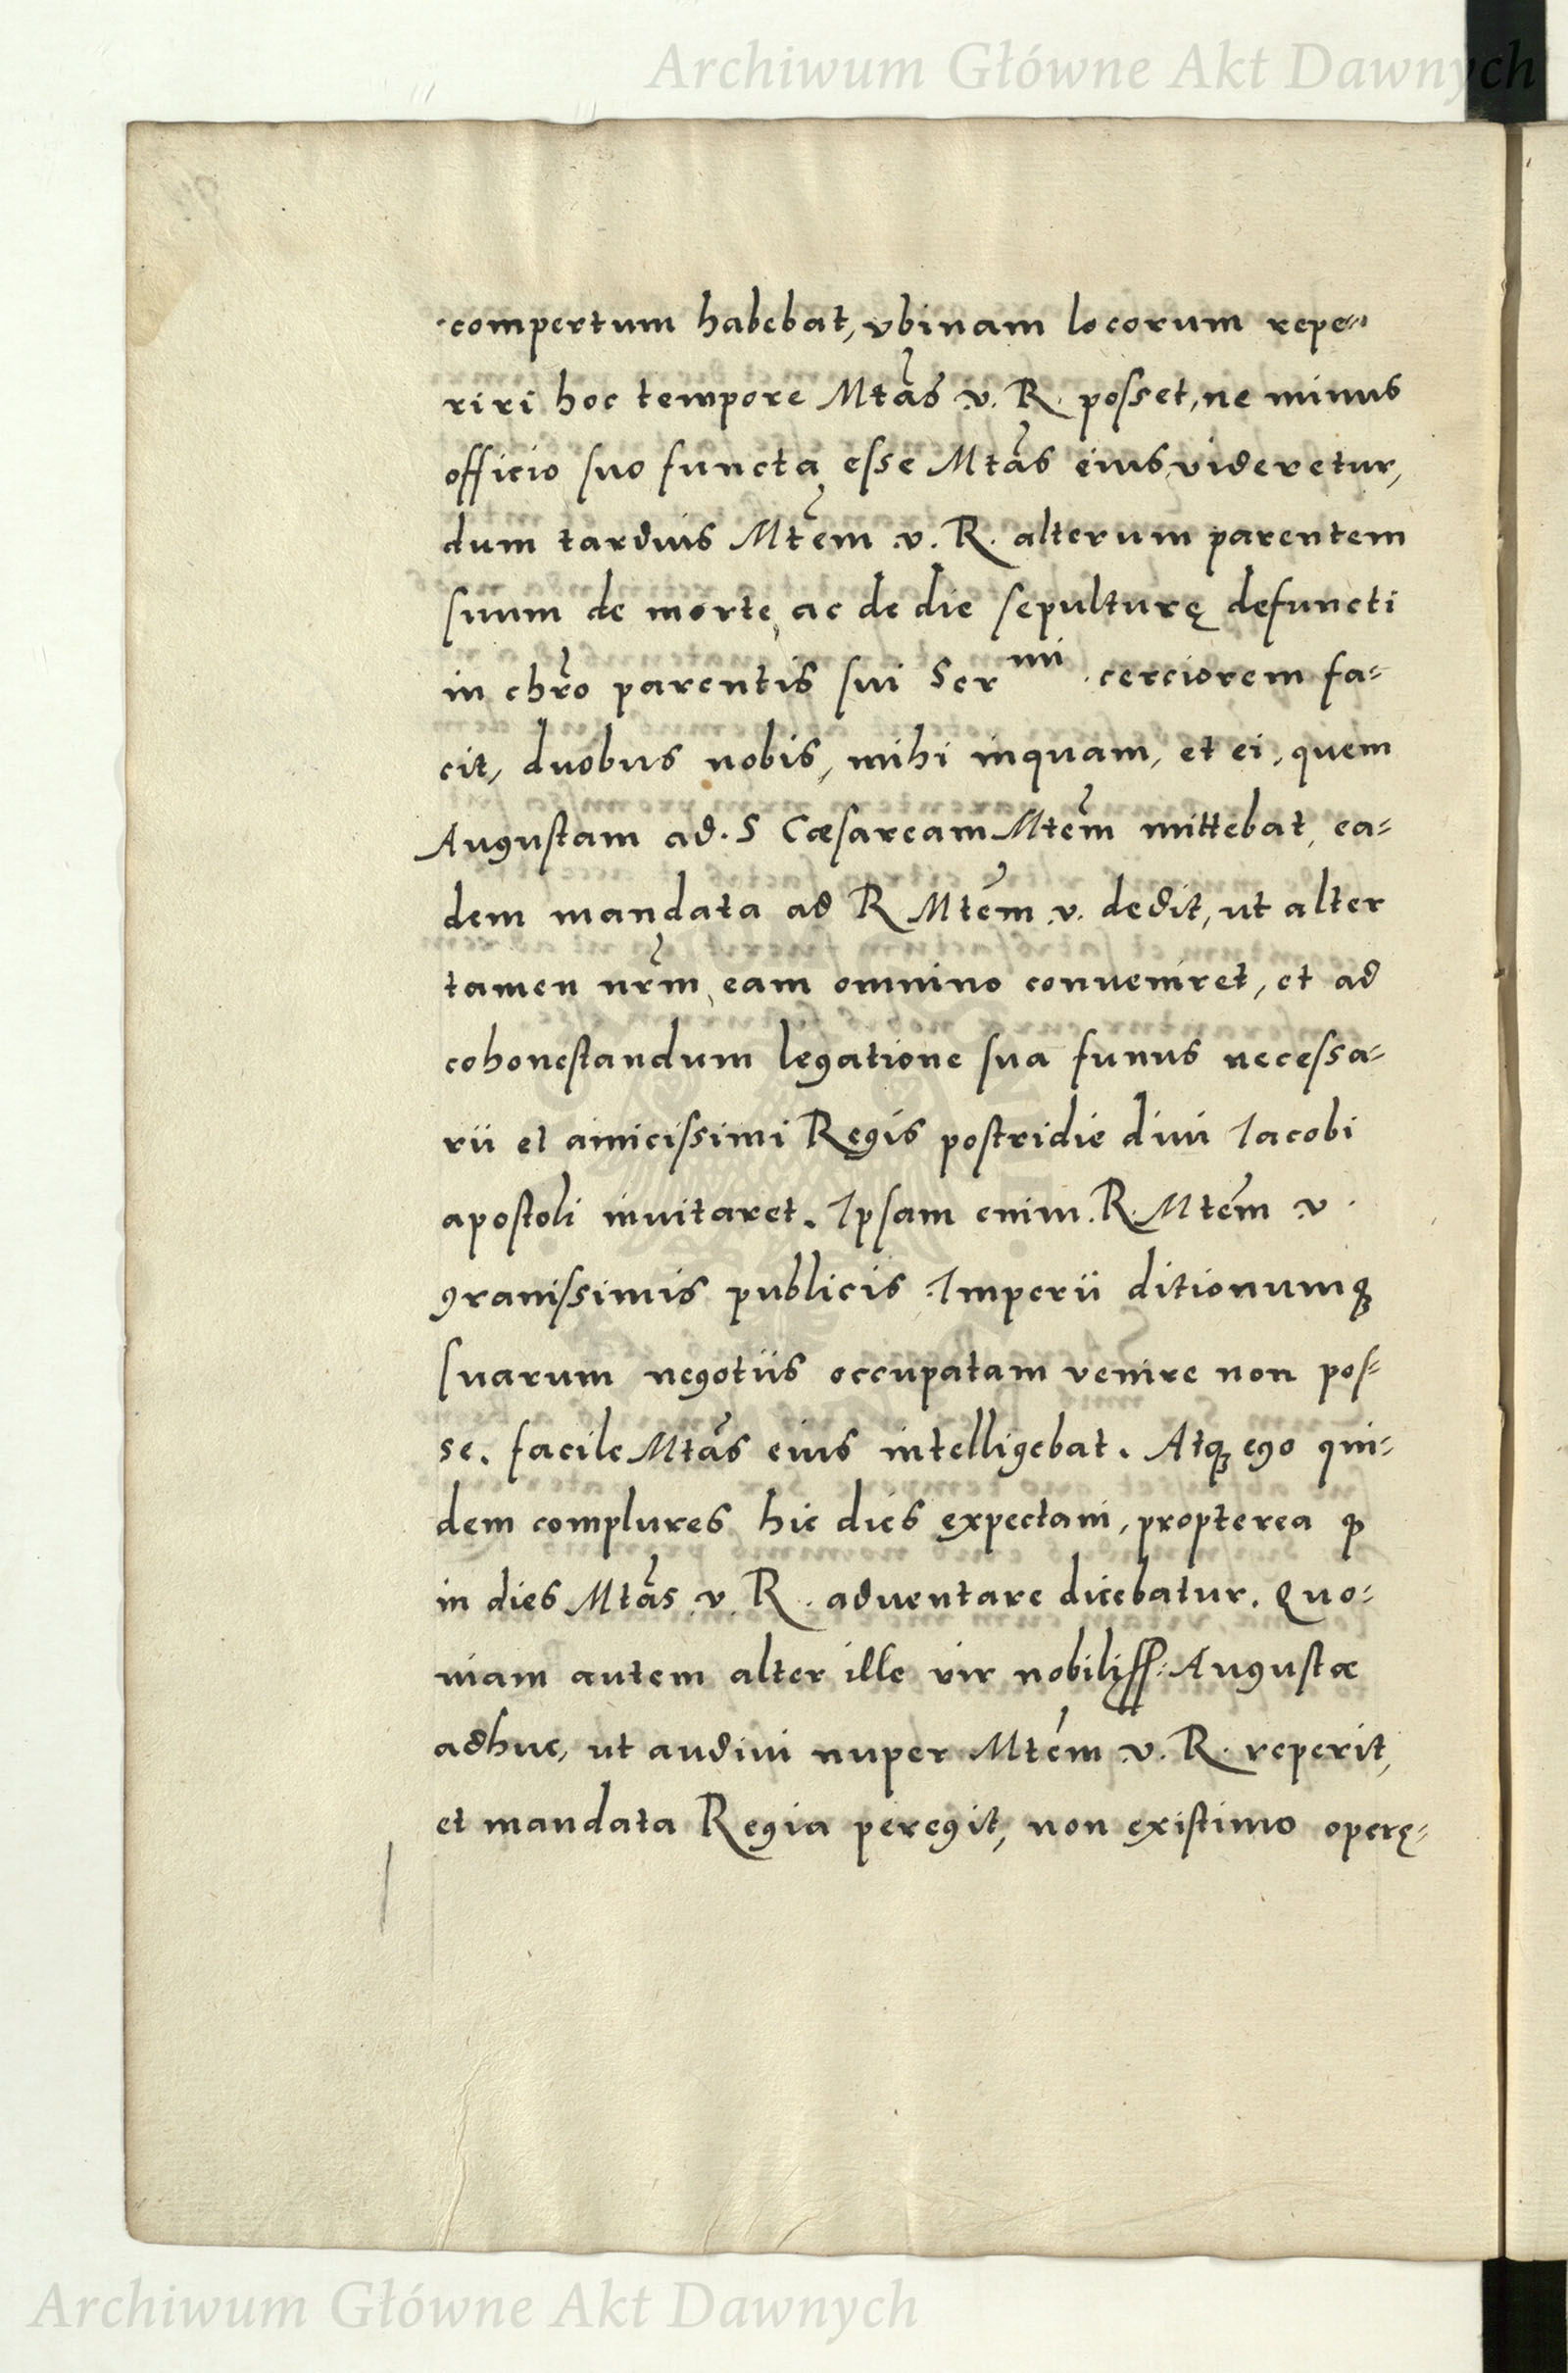 Archiwum Główne Akt Dawnych
compertum habebat, vbinam locorum repe=
riri hoc tempore Mtas v. R. posset, ne minus
officio suo functa esse Mtas eius videretur,
dum tardius Mtem v. R. alterum parentem
suum de morte, ac de die sepulturę defuncti
in chro parentis sui Ser mi cerciorem fa=
cit, duobus nobis, mihi inquam, et ei, quem
Augustam ad. S Cæsaream Mtem mittebat, ea=
dem mandata ad R Mtem v. dedit, ut alter
tamen nrm, eam omnino conueniret, et ad
cohonestandum legatione sua funus necessa=
rii et amicissimi Regis postridie diui Iacobi
apostoli inuitaret. Ipsam enim. R. Mtem v.
grauissimis publicis Imperii ditionumq
suarum negotiis occupatam venire non pos=
se. facile Mtas eius intelligebat. Atq ego qui=
dem complures hic dies expectaui, propterea q
in dies Mtas v. R. aduentare dicebatur. Quo=
niam autem alter ille vir nobiliss: Augustæ
adhuc, ut audiui nuper Mtem v. R. reperit,
et mandata Regia peregit, non existimo operę=
Archiwum Główne Akt Dawnych